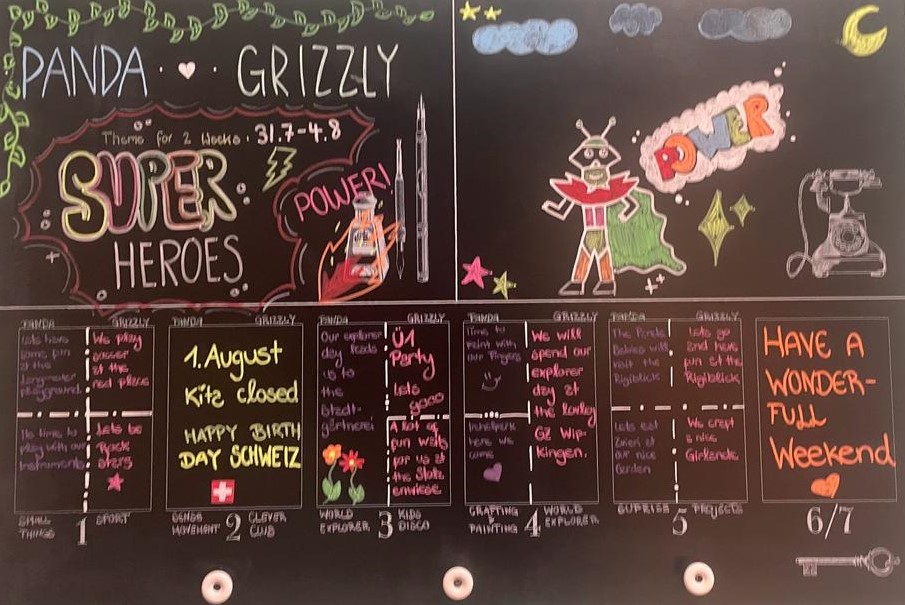 PANDA · GRIZZLY
Theme for 2 Weeks: 31.7-4.8
SUPER
HEROES
POWER!
POWER
PANDA GRIZZLY
Lets have
some fun
at the
playground.
Its time to
play with our
Instruments
We play
soccer
at the
red place
Lets be
Rock
stars
SMALL
THINGS
1
SPORT
PANDA GRIZZLY
1. August
Kita closed
HAPPY BIRTH
DAY SCHWEIZ
MOVEMENT
2
CLEVER
CLUB
PANDA GRIZZLY
Our explorer
day leads
us to
the
Stadt-
gärtnerei
Ü1
Party
Lets
gooo
A lot of
fun waits
for us at
the
WORLD
EXPLORER
3
KIDS
DISCO
PANDA GRIZZLY
Time to
paint with
our fingers
here we
come
We will
spend our
explorer
day at
the
GZ Wip-
kingen.
CRAFTING
PAINTING
4
WORLD
EXPLORER
PANDA GRIZZLY
The Panda
Babies will
visit the
Rigiblick
Lets eat
Znüni at
our nice
Garden
Lets go
and have
fun at the
Rigiblick
We craft
a nice
Girlande
SUPRISE
5
PROJECTS
HAVE A
WONDER-
FULL
Weekend
6/7